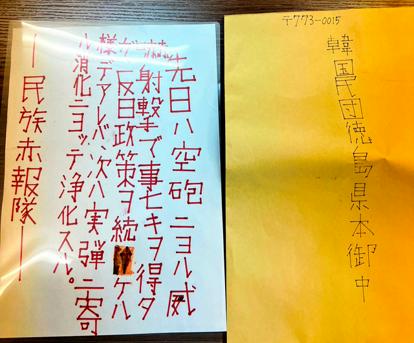 〒773-0015
韓国民団徳島県本御中
先日ハ空砲ニヨル威
嚇射撃デ事ナキヲ得タ
ガ、反日政策ヲ続ケル
様デアレバ、次ハ実弾ニ寄
ル消化ニヨッテ浄化スル。
―民族赤報隊―